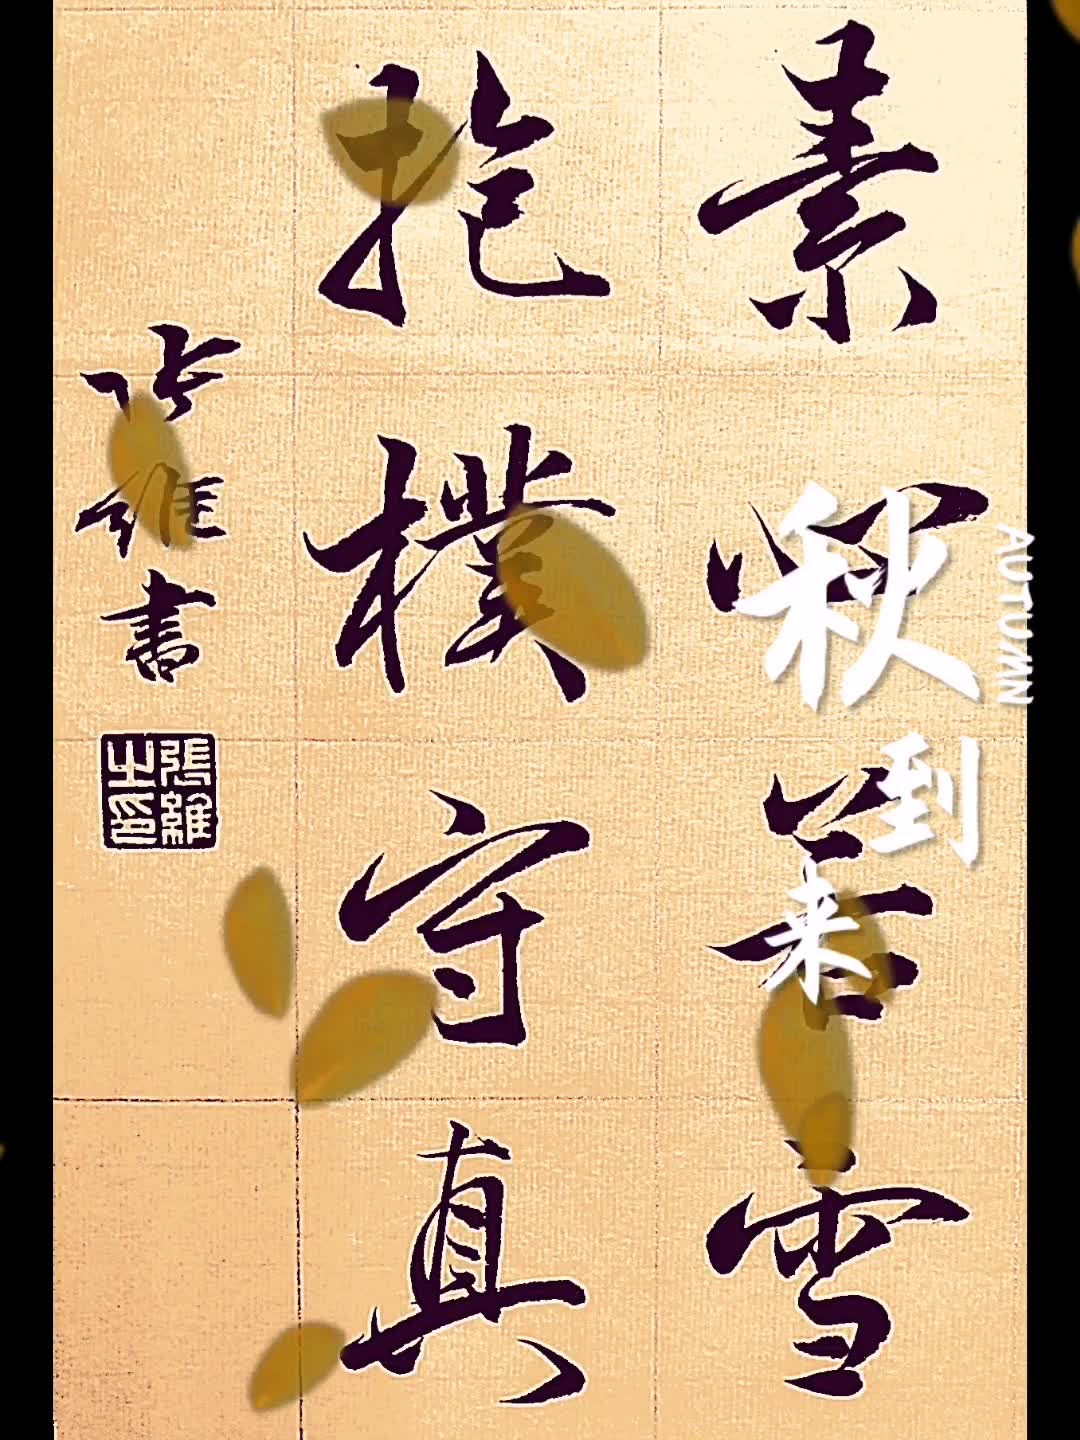 素心若雪
抱樸守真
张维書
張維之印
秋到来
AUTUMN